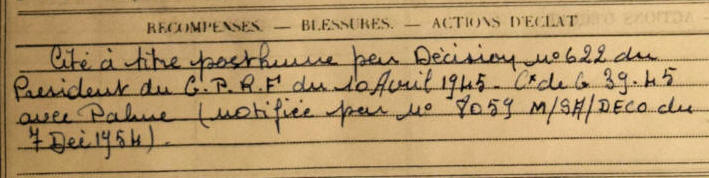 RECOMPENSES. — BLESSURES. — ACTIONS D'ECLAT
Cité à titre posthume par Décision n° 622 du
President du G.P.R.F du 10 Avril 1945 - Cx de G 39-45
avec Palme (notifiée par n° 7059 M/SA/DECO du
7 Déc 1954).